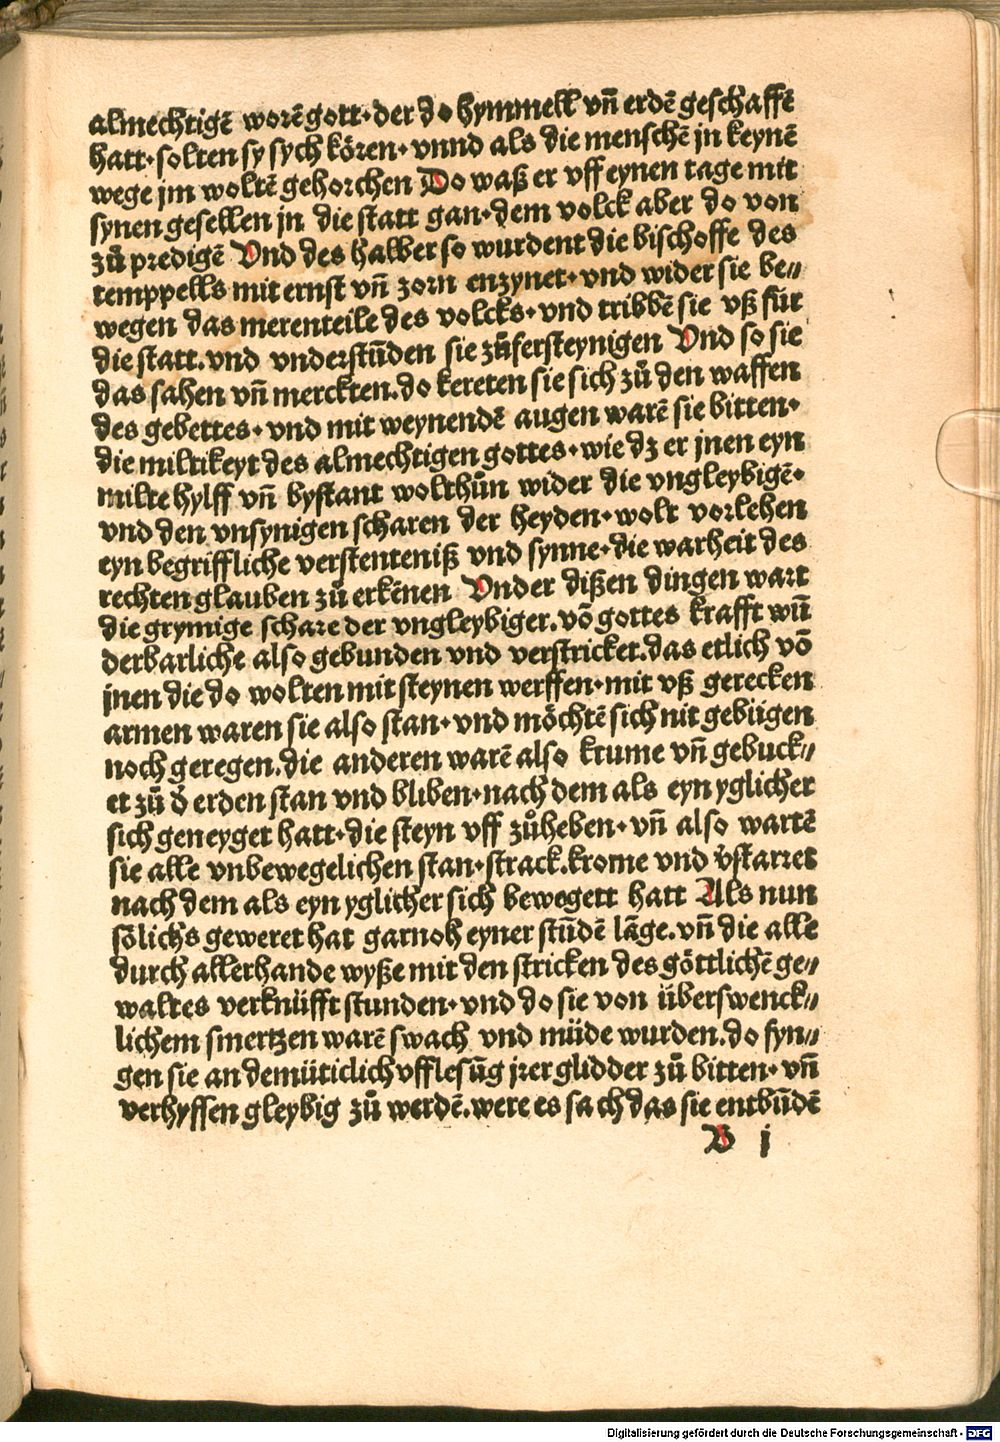 almechtigē worē gott· der do hymmell vn̄ erdē geschaffē
hatt· solten sy sych kören· vnnd als die menschē jn keynē
wege jm woltē gehorchen Do waß er vff eynen tage mit
synen gesellen jn die statt gan· dem volck aber do von
zů predigē Vnd des halber so wurdent die bischoffe des
temppells mit ernst vn̄ zorn enzynet· vnd wider sie be⸗
wegen das merenteile des volcks· vnd tribbē sie vß für
die statt. vnd vnderstūden sie zůfersteynigen Vnd so sie
das sahen vn̄ merckten. do kereten sie sich zů den waffen
des gebettes· vnd mit weynendē augen warē sie bitten·
die miltikeyt des almechtigen gottes· wie dz er jnen eyn
milte hylff vn̄ bystant wolthůn wider die vngleybigē·
vnd den vnsynigen scharen der heyden· wolt vorlehen
eyn begriffliche verstenteniß vnd synne· die warheit des
rechten glauben zů erkēnen Vnder dißen dingen wart
die grymige schare der vngleybiger. vō gottes krafft wū
derbarliche also gebunden vnd verstricket. das etlich vō
jnen die do wolten mit steynen werffen· mit vß gerecken
armen waren sie also stan· vnd möchtē sich nit gebügen
noch geregen. die anderen warē also krume vn̄ gebuck⸗
et zů d̄ erden stan vnd bliben· nach dem als eyn yglicher
sich geneyget hatt· die steyn vff zůheben· vn̄ also wartē
sie alle vnbewegelichen stan· strack. krome vnd v̄starret
nach dem als eyn yglicher sich bewegett hatt Als nun
sölichs geweret hat garnoh eyner stūdē lāge. vn̄ die alle
durch allerhande wyße mit den stricken des göttlichē ge⸗
waltes verknüfft stunden· vnd do sie von überswenck⸗
lichem smertzen warē swach vnd müde wurden. do fyn⸗
gen sie an demüticlich vfflesūg jrer glidder zů bitten· vn̄
verhyssen gleybig zů werdē. were es sach das sie entbūdē
B j
Digitalisierung gefördert durch die Deutsche Forschungsgemeinschaft - DFG